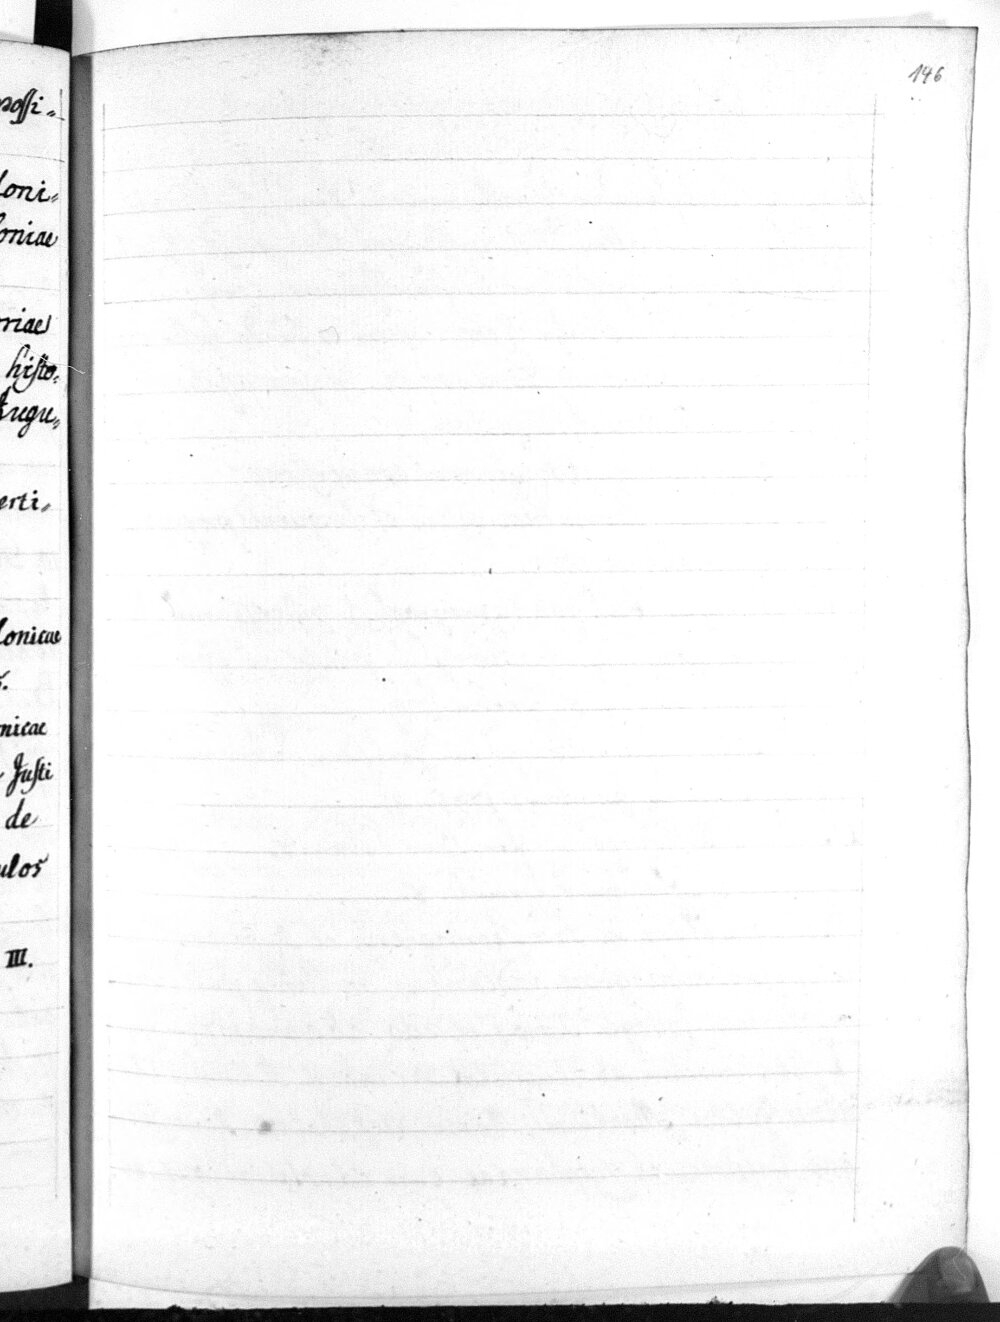 possi⸗
loni⸗
loniae
oriae
histo⸗
Augu⸗
erti⸗
lonicae
s.
nicae
Justi
de
ulos
III.
146